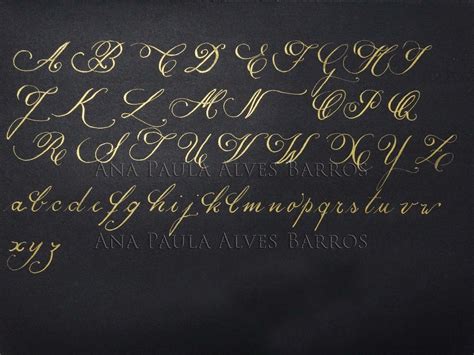 A B C D E F G H I
J K L M N O P Q
R S T U V W X Y Z
ANA PAULA ALVES BARROS
a b c d e f g h i j k l m n o p q r s t u v w
ANA PAULA ALVES BARROS
x y z